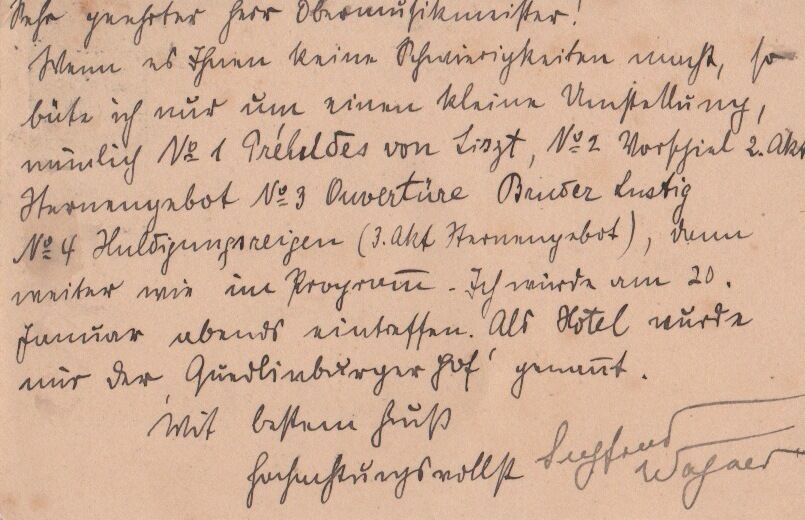 Sehr geehrter Herr Obermusikmeister!
Wenn es Ihnen keine Schwierigkeiten macht, so
bitte ich nur um einen kleine Umstellung,
nämlich No 1 Préludes von Liszt, No 2 Vorspiel 2. Akt
Sternengebot No 3 Ouvertüre Bruder Lustig
No 4 Huldigungsreigen (3. Akt Sternengebot), dann
weiter wie im Program̅ - Ich würde am 20.
Januar abends eintreffen. Als Hotel wurde
mir der „Quedlinburger Hof‘ genan̅t.
Mit bestem Gruß
Hochachtungsvollst Siegfried
Wagner